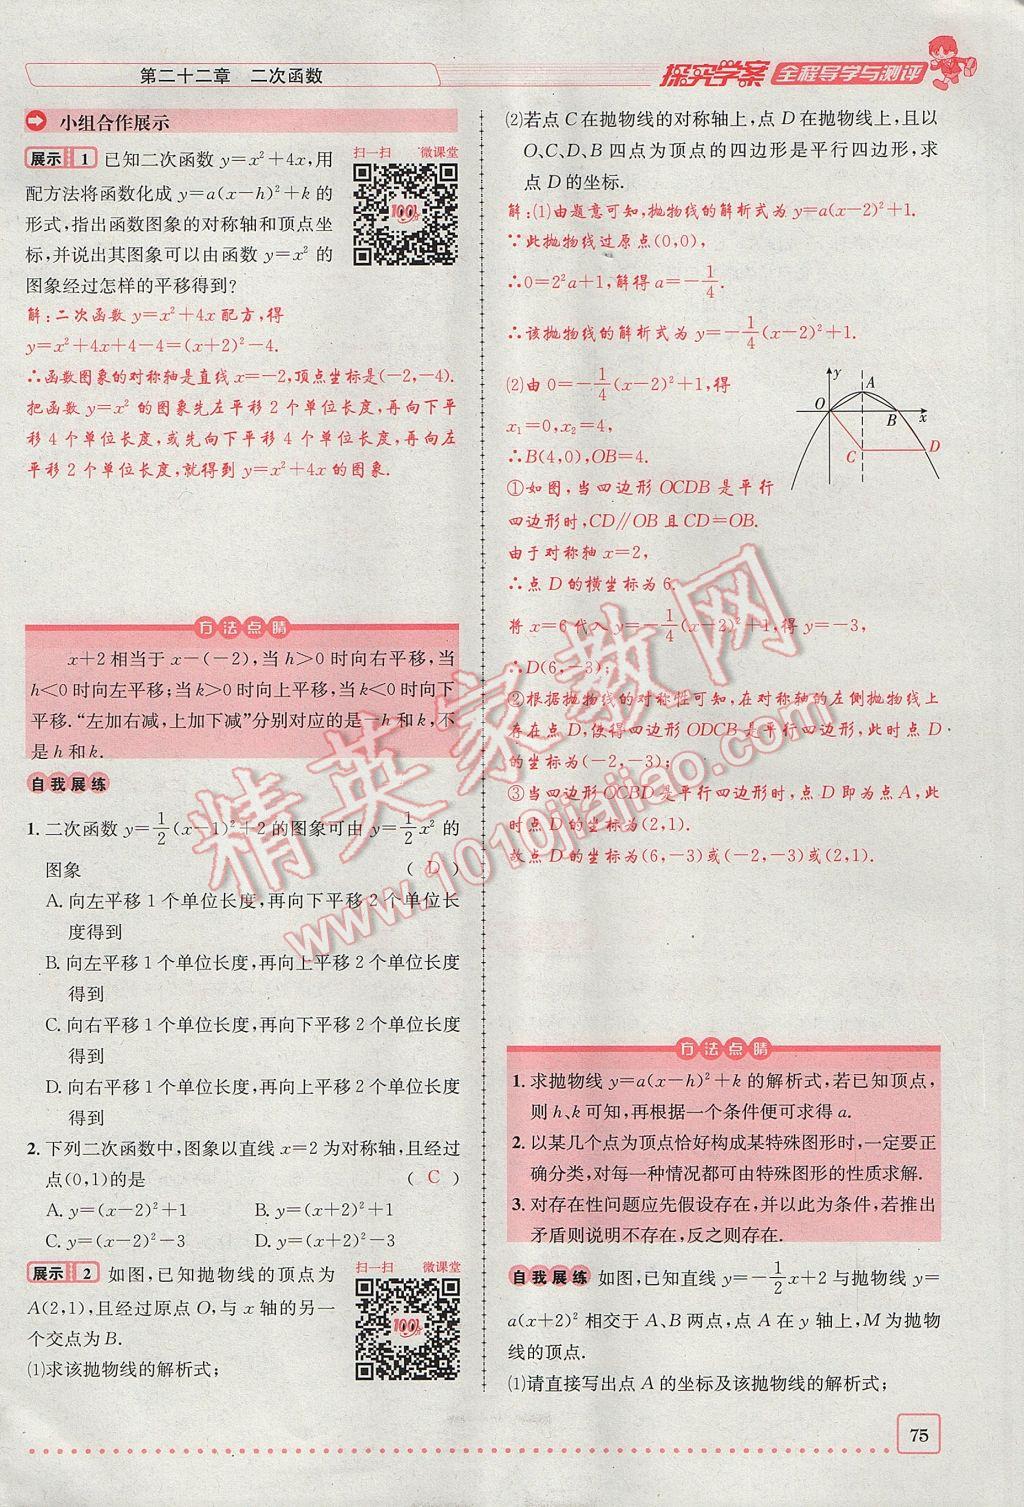 第二十二章　二次函数
探究学案 全程导学与测评
小组合作展示
展示 1 已知二次函数 y=x²+4x,用
扫一扫 微课堂
配方法将函数化成 y=a(x-h)²+k 的
形式,指出函数图象的对称轴和顶点坐
标,并说出其图象可以由函数 y=x² 的
图象经过怎样的平移得到?
解:二次函数 y=x²+4x 配方,得
y=x²+4x+4-4=(x+2)²-4.
∴函数图象的对称轴是直线x=-2,顶点坐标是(-2,-4).
把函数 y=x² 的图象先左平移 2 个单位长度,再向下平
移 4 个单位长度,或先向下平移 4 个单位长度,再向左
平移 2 个单位长度,就得到 y=x²+4x 的图象.
方法点睛
x+2 相当于 x-(-2),当 h>0 时向右平移,当
h<0 时向左平移;当 k>0 时向上平移,当 k<0 时向下
平移.“左加右减,上加下减”分别对应的是-h 和 k,不
是 h 和 k.
自我展练
1. 二次函数 y=1/2(x-1)²+2 的图象可由 y=1/2x² 的
图象 ( D )
A. 向左平移 1 个单位长度,再向下平移 2 个单位长
度得到
B. 向左平移 1 个单位长度,再向上平移 2 个单位长度
得到
C. 向右平移 1 个单位长度,再向下平移 2 个单位长度
得到
D. 向右平移 1 个单位长度,再向上平移 2 个单位长度
得到
2. 下列二次函数中,图象以直线 x=2 为对称轴,且经过
点(0,1)的是 ( C )
A. y=(x-2)²+1 B. y=(x+2)²+1
C. y=(x-2)²-3 D. y=(x+2)²-3
展示 2 如图,已知抛物线的顶点为
扫一扫 微课堂
A(2,1),且经过原点 O,与 x 轴的另一
个交点为 B.
(1)求该抛物线的解析式;
(2)若点 C 在抛物线的对称轴上,点 D 在抛物线上,且以
O、C、D、B 四点为顶点的四边形是平行四边形,求
点 D 的坐标.
解:(1)由题意可知,抛物线的解析式为 y=a(x-2)²+1.
∵此抛物线过原点(0,0),
∴0=2²a+1,解得 a=-1/4.
∴该抛物线的解析式为 y=-1/4(x-2)²+1.
(2)由 0=-1/4(x-2)²+1,得
x₁=0,x₂=4,
∴B(4,0),OB=4.
①如图,当四边形 OCDB 是平行
四边形时,CD∥OB 且 CD=OB.
由于对称轴 x=2,
∴点 D 的横坐标为 6.
将 x=6 代入 y=-1/4(x-2)²+1,得 y=-3,
∴D(6,-3);
②根据抛物线的对称性可知,在对称轴的左侧抛物线上
存在点 D,使得四边形 ODCB 是平行四边形,此时点 D
的坐标为(-2,-3);
③当四边形 OCBD 是平行四边形时,点 D 即为点 A,此
时点 D 的坐标为(2,1).
故点 D 的坐标为(6,-3)或(-2,-3)或(2,1).
y
A
O
B
x
C
D
方法点睛
1. 求抛物线 y=a(x-h)²+k 的解析式,若已知顶点,
则 h、k 可知,再根据一个条件便可求得 a.
2. 以某几个点为顶点恰好构成某特殊图形时,一定要正
确分类,对每一种情况都可由特殊图形的性质求解.
3. 对存在性问题应先假设存在,并以此为条件,若推出
矛盾则说明不存在,反之则存在.
自我展练 如图,已知直线 y=-1/2x+2 与抛物线 y=
a(x+2)² 相交于 A、B 两点,点 A 在 y 轴上,M 为抛物
线的顶点.
(1)请直接写出点 A 的坐标及该抛物线的解析式;
75
精英家教网
www.1010jiajiao.com